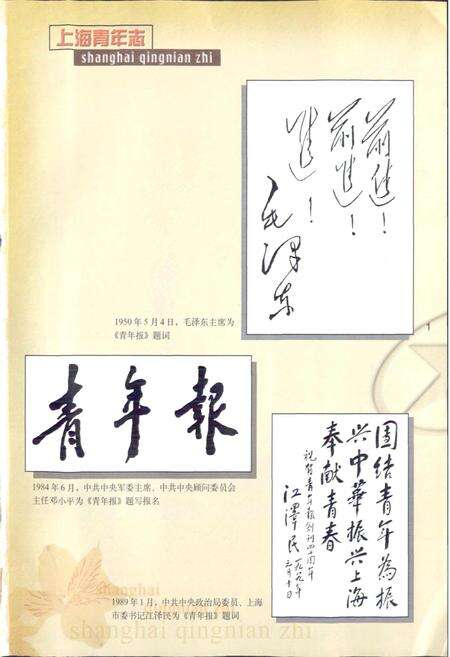 上海青年志
shanghai qingnian zhi
前进！
前进！
进！
毛泽东
1950年5月4日，毛泽东主席为
《青年报》题词
青年報
1984年6月，中共中央军委主席、中共中央顾问委员会
主任邓小平为《青年报》题写报名
团结青年為振
兴中華振兴上海
奉献青春
祝贺青年报创刊四十周年
江澤民
一九八九年
元月十日
shanghai
1989年1月，中共中央政治局委员、上海
市委书记江泽民为《青年报》题词
shanghai qingnian zhi